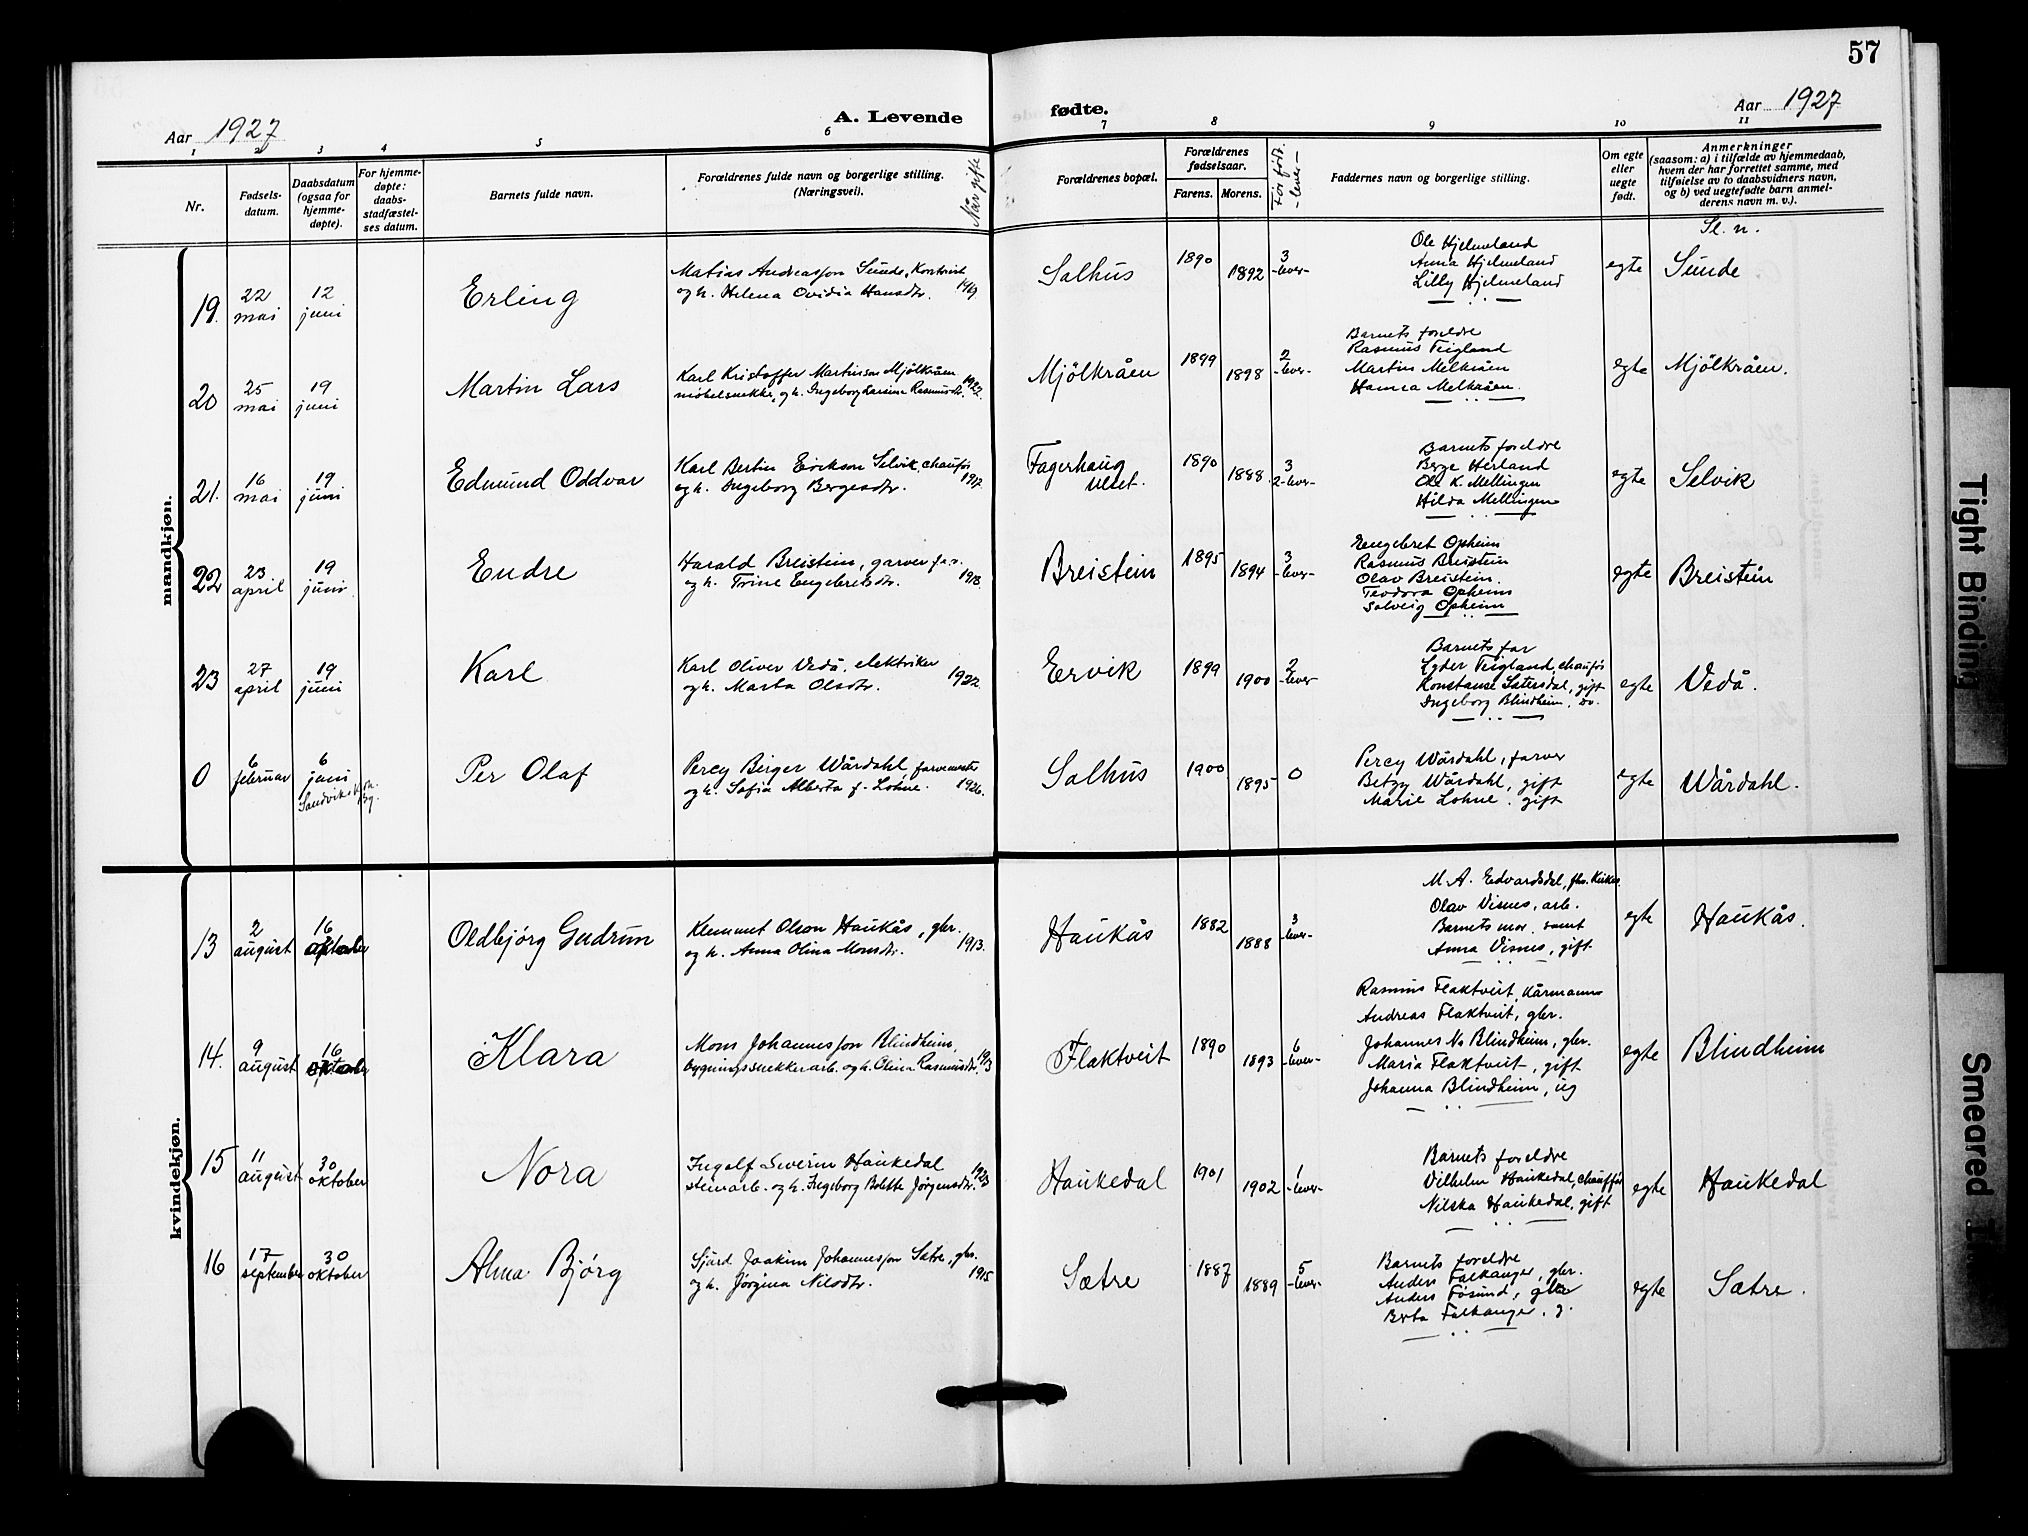 57
Aar 1927
A. Levende
fødte.
Aar 1927
1 2 3 4 5 6 7 8 9 10 11
Nr.
Fødsels-
datum.
Daabsdatum
(ogsaa for
hjemme-
døpte).
For hjemme-
døpte:
daabs-
stadfæstel-
ses datum.
Barnets fulde navn.
Forældrenes fulde navn og borgerlige stilling.
(Næringsvei).
Når gifte
Forældrenes bopæl.
Forældrenes
fødselsaar.
Farens. Morens.
Før født.
-lever-
Faddernes navn og borgerlige stilling.
Om egte
eller
uegte
født.
Anmerkninger
(saasom: a) i tilfælde av hjemmedaab,
hvem der har forrettet samme, med
tilføielse av to daabsvidners navn,
og b) ved uegtefødte barn anmel-
derens navn m. v.).
Sl. n.
mandkjøn.
19. 22 mai 12 juni
Erling
Matias Andreassøn Sunde, Kontorist
og h. Helena Ovidia Hansdtr. 1919
Salhus 1890 1892 3 -lever-
Ole Hjelmeland
Anna Hjelmeland
Lilly Hjelmeland
egte Sunde
20 25 mai 19 juni
Martin Lars
Karl Kristoffer Martinson Mjölkråen
møbelsnekker, og h. Ingeborg Larsine Rasmusdtr.
Mjölkråen 1899 1898 2 -lever-
Barnets foreldre
Rasmus Teigland
Martin Melkråen
Hanna Melkråen.
egte Mjölkråen.
21. 16 mai 19 juni
Edmund Oddvar
Karl Bertin Erikson Selvik, chaufør
og h. Ingeborg Bergesdtr. 1917.
Fagerhaug
Ulset. 1890 1888 3 2-lever-
Barnets foreldre
Berge Herland
Ole K. Mellingen
Hilda Mellingen
egte Selvik
22 23 april 19 juni
Endre
Harald Breistein, garver f.v.
og h. Trine Engebretsdtr. 1918.
Breistein 1895 1894 3 -lever-
Engebret Opheim
Rasmus Breistein
Olav Breistein.
Teodora Opheim
Solveig Opheim
egte Breistein
23 27 april 19 juni
Karl
Karl Oliver Vedå, elektriker
og h. Marta Olsdtr. 1922
Ervik 1899 1900 2 -lever-
Barnets far
Lyder Teigland, chaufør
Konstanse Sætersdal, gift
Ingeborg Blindheim, do.
egte Vedå.
0 6 februar 6 juni Sandviks k. Bg.
Per Olaf
Percy Birger Wårdahl farvemester
og h. Sofia Alberta f. Lohne. 1926.
Salhus 1900 1895 0
Percy Wårdahl, farver
Betzy Wårdahl, gift
Marie Lohne, gift
egte Wårdahl.
kvindekjøn.
13 2 august 16 oktober
Oldbjørg Gudrun
Klemmet Olson Haukås, gbr.
og h. Anna Olina Monsdtr. 1913.
Haukås 1882 1888 3 -lever-
M. A. Edvardsdal,
Olav Visnes, arb.
Barnets mor, samt
Anna Visnes, gift
egte Haukås.
14. 9 august 16 oktober
Klara
Mons Johannessøn Blindheim,
bygningssnekkerarb. og h. Olina Rasmusdtr. 1913
Flaktveit 1890 1893 6 -lever-
Rasmus Flaktveit, kårmann
Andreas Flaktveit, gbr.
Johannes Ns Blindheim, gbr.
Maria Flaktveit, gift
Johanna Blindheim, ug
egte Blindheim
15 11 august 30 oktober
Nora
Ingolf Severin Haukedal
stenarb. og h. Ingeborg Bolette Jørgensdtr. 1923
Haukedal 1901 1902 1 -lever-
Barnets foreldre
Vilhelm Haukedal, chauffør
Nilska Haukedal, gift
egte Haukedal
16 17 september 30 oktober
Alma Bjørg
Sjurd Joakim Johannessøn Sætre, gbr.
og h. Jørgina Nilsdtr. 1915
Sætre 1887 1889 5 -lever-
Barnets foreldre
Anders Falkanger, gbr.
Anders Fosund, gbr
Berta Falkanger, g.
egte Sætre.
Tight Binding
Smeared